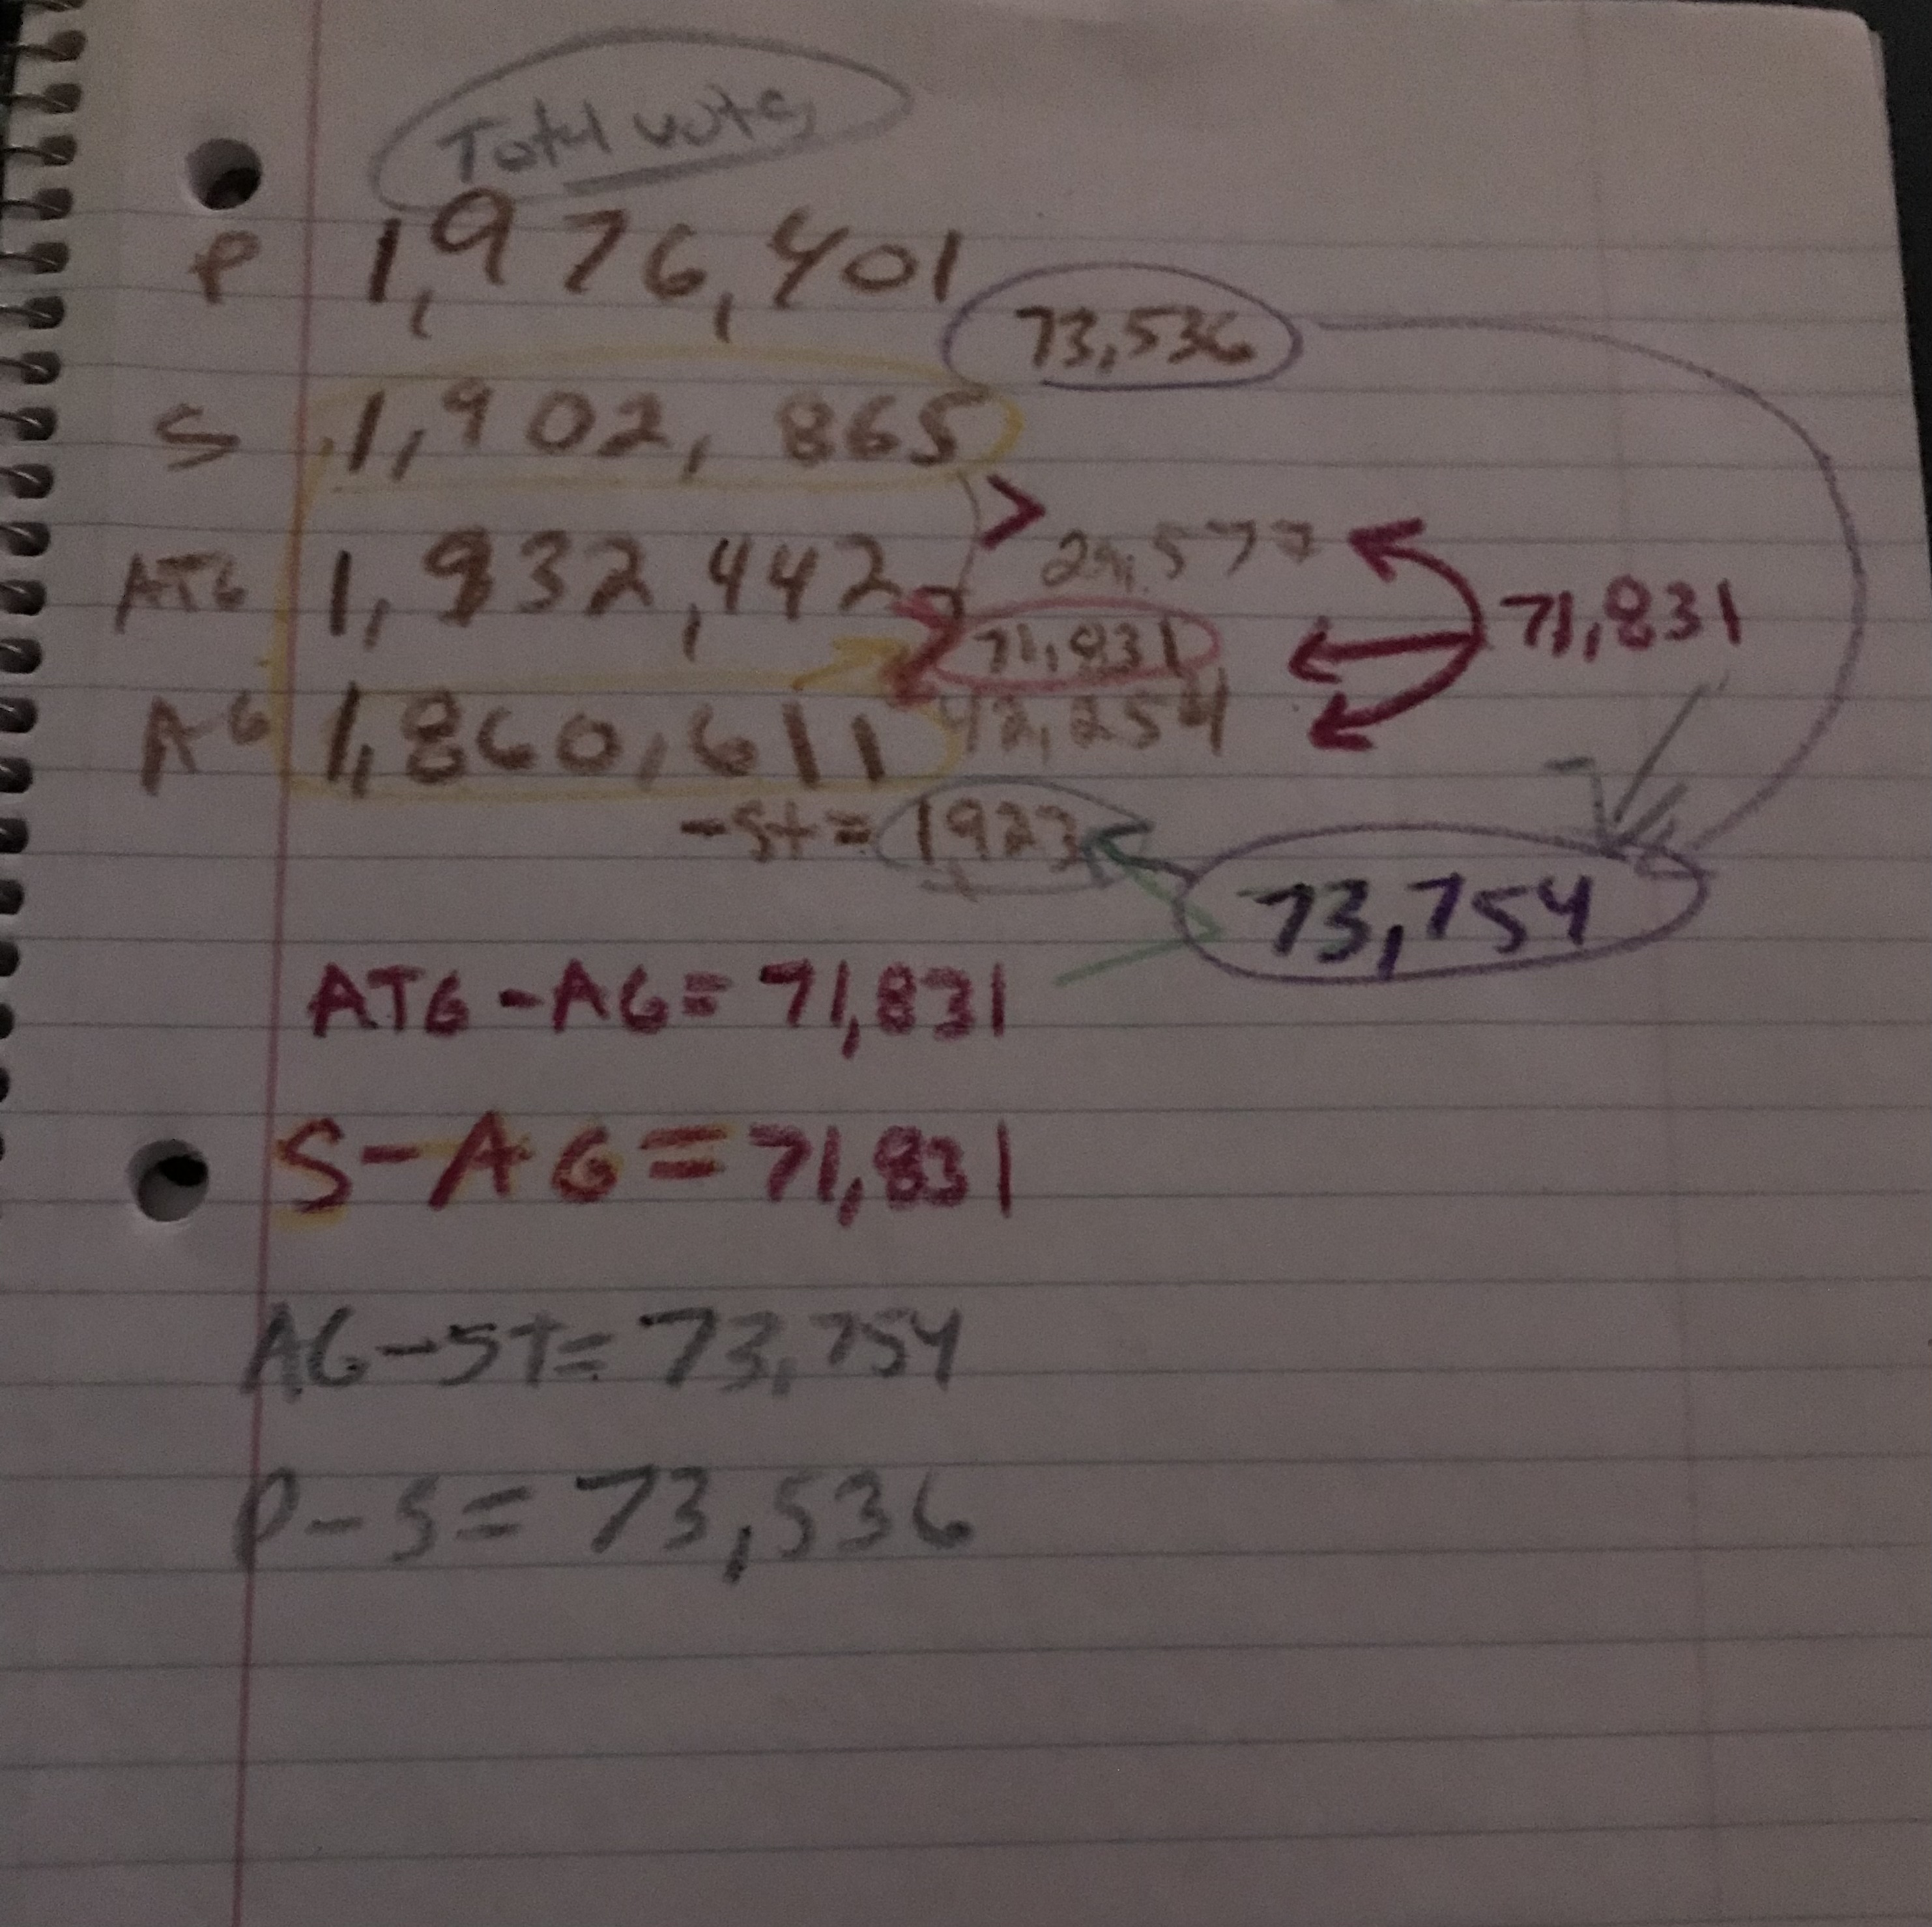 Total votes
P 1,976,401
73,536
S 1,902,865
29,577
ATG 1,932,442
71,831
71,831
AG 1,860,611
42,254
-St = 1,923
73,754
ATG - AG = 71,831
S - AG = 71,831
AG - St = 73,754
P - S = 73,536